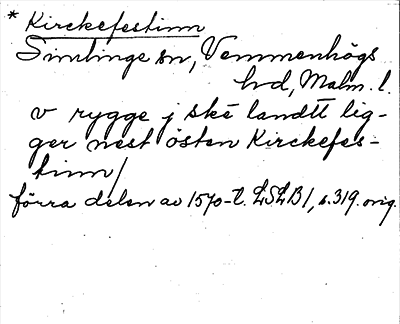 * Kirckefestinn
Simlinge sn, Vemmenhögs
hd, Malm. l.
v rygge j ské landtt lig-
ger nest östen Kirckefes-
tinn/
förra delen av 1570-t. LSLB1, s.319. orig.